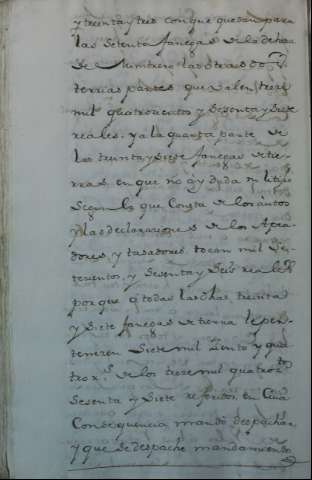 y treinta y tres con que quedan para
las setenta fanegas de la dehesa
de las otras dos
tercias partes que valen trece
mil quatrocientos y sesenta y siete
reales. y a la quarta parte de
las treinta y siete fanegas de tie-
rras, en que no ay duda ni litixio
segun lo que consta de los autos
y las declaraciones de los Apea-
dores, y tasadores, tocan mil se-
tecientos, y sesenta y seis reales
porque a todas las dhas treinta
y siete fanegas de tierra le per-
tenecen siete mil zento y qua-
tro rs. de los trece mil quatrozos
sesenta y siete referidos, en Cuia
Consequencia, mando despachar
y que se despache mandamiento